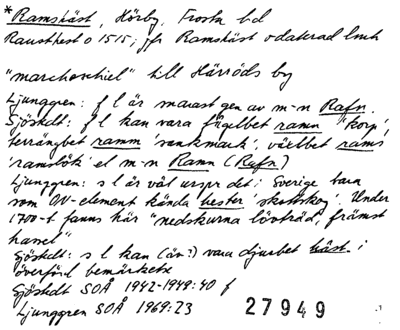 *Ramshäst, Hörby, Frosta hd
Rausthest o 1515; jfr Ramshäst odaterad lmk
till Härröds by
Ljunggren: f l är maast gen av m-n Rafn.
Sjöstedt: f l kan vara fågelbet ramn 'korp',
terrängbet ramm 'sankmark', växtbet rams
'ramslök' el m-n Ramn (Rafn)
Ljunggren: s l är väl urspr det i Sverige bara
som ON-element kända hester 'skottskog'. Under
1700-t fanns här "nedskurna lövträd, främst
hassel"
Sjöstedt: s l kan (än?) vara djurbet häst i
överförd bemärkelse
Sjöstedt SOÅ 1942-1949:40 f
Ljunggren SOÅ 1969:23
27949